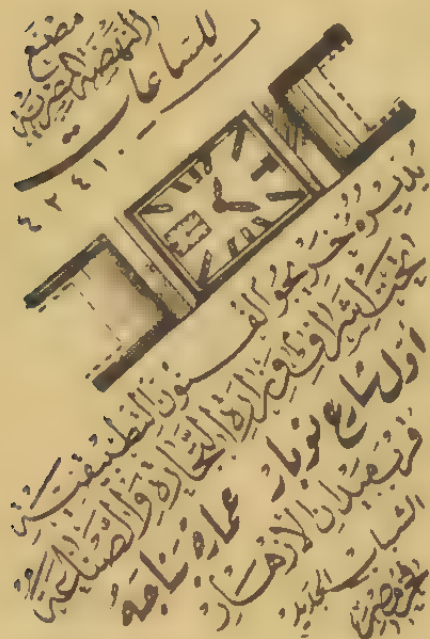 مصنع
النهضة المصرية
للساعات
ت ٤٢٤١٠
يديره خريجو الفنون التطبيقية
تحت إشراف وزارة التجارة والصناعة
أول شارع نوبار عمارة ناجه
قرب ميدان الأزهار
الشباب الجديد